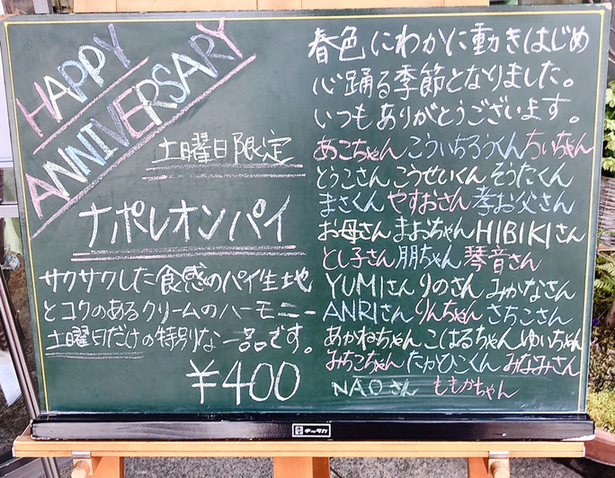 HAPPY
ANNIVERSARY
土曜日限定
ナポレオンパイ
サクサクした食感のパイ生地
とコクのあるクリームのハーモニー
土曜日だけの特別な一品です。
¥400
春色にわかに動きはじめ
心踊る季節となりました。
いつもありがとうございます。
あこちゃん こういちろうくん ちいちゃん
とうこさん こうせいくん そうたくん
まさくん やすおさん 孝お父さん
お母さん まおちゃん HIBIKIさん
とし子さん 朋ちゃん 琴音さん
YUMIさん りのさん みかなさん
ANRIさん りんちゃん さちこさん
あかねちゃん こはるちゃん ゆいちゃん
みちこちゃん たかひこくん みなみさん
NAOさん ももかちゃん